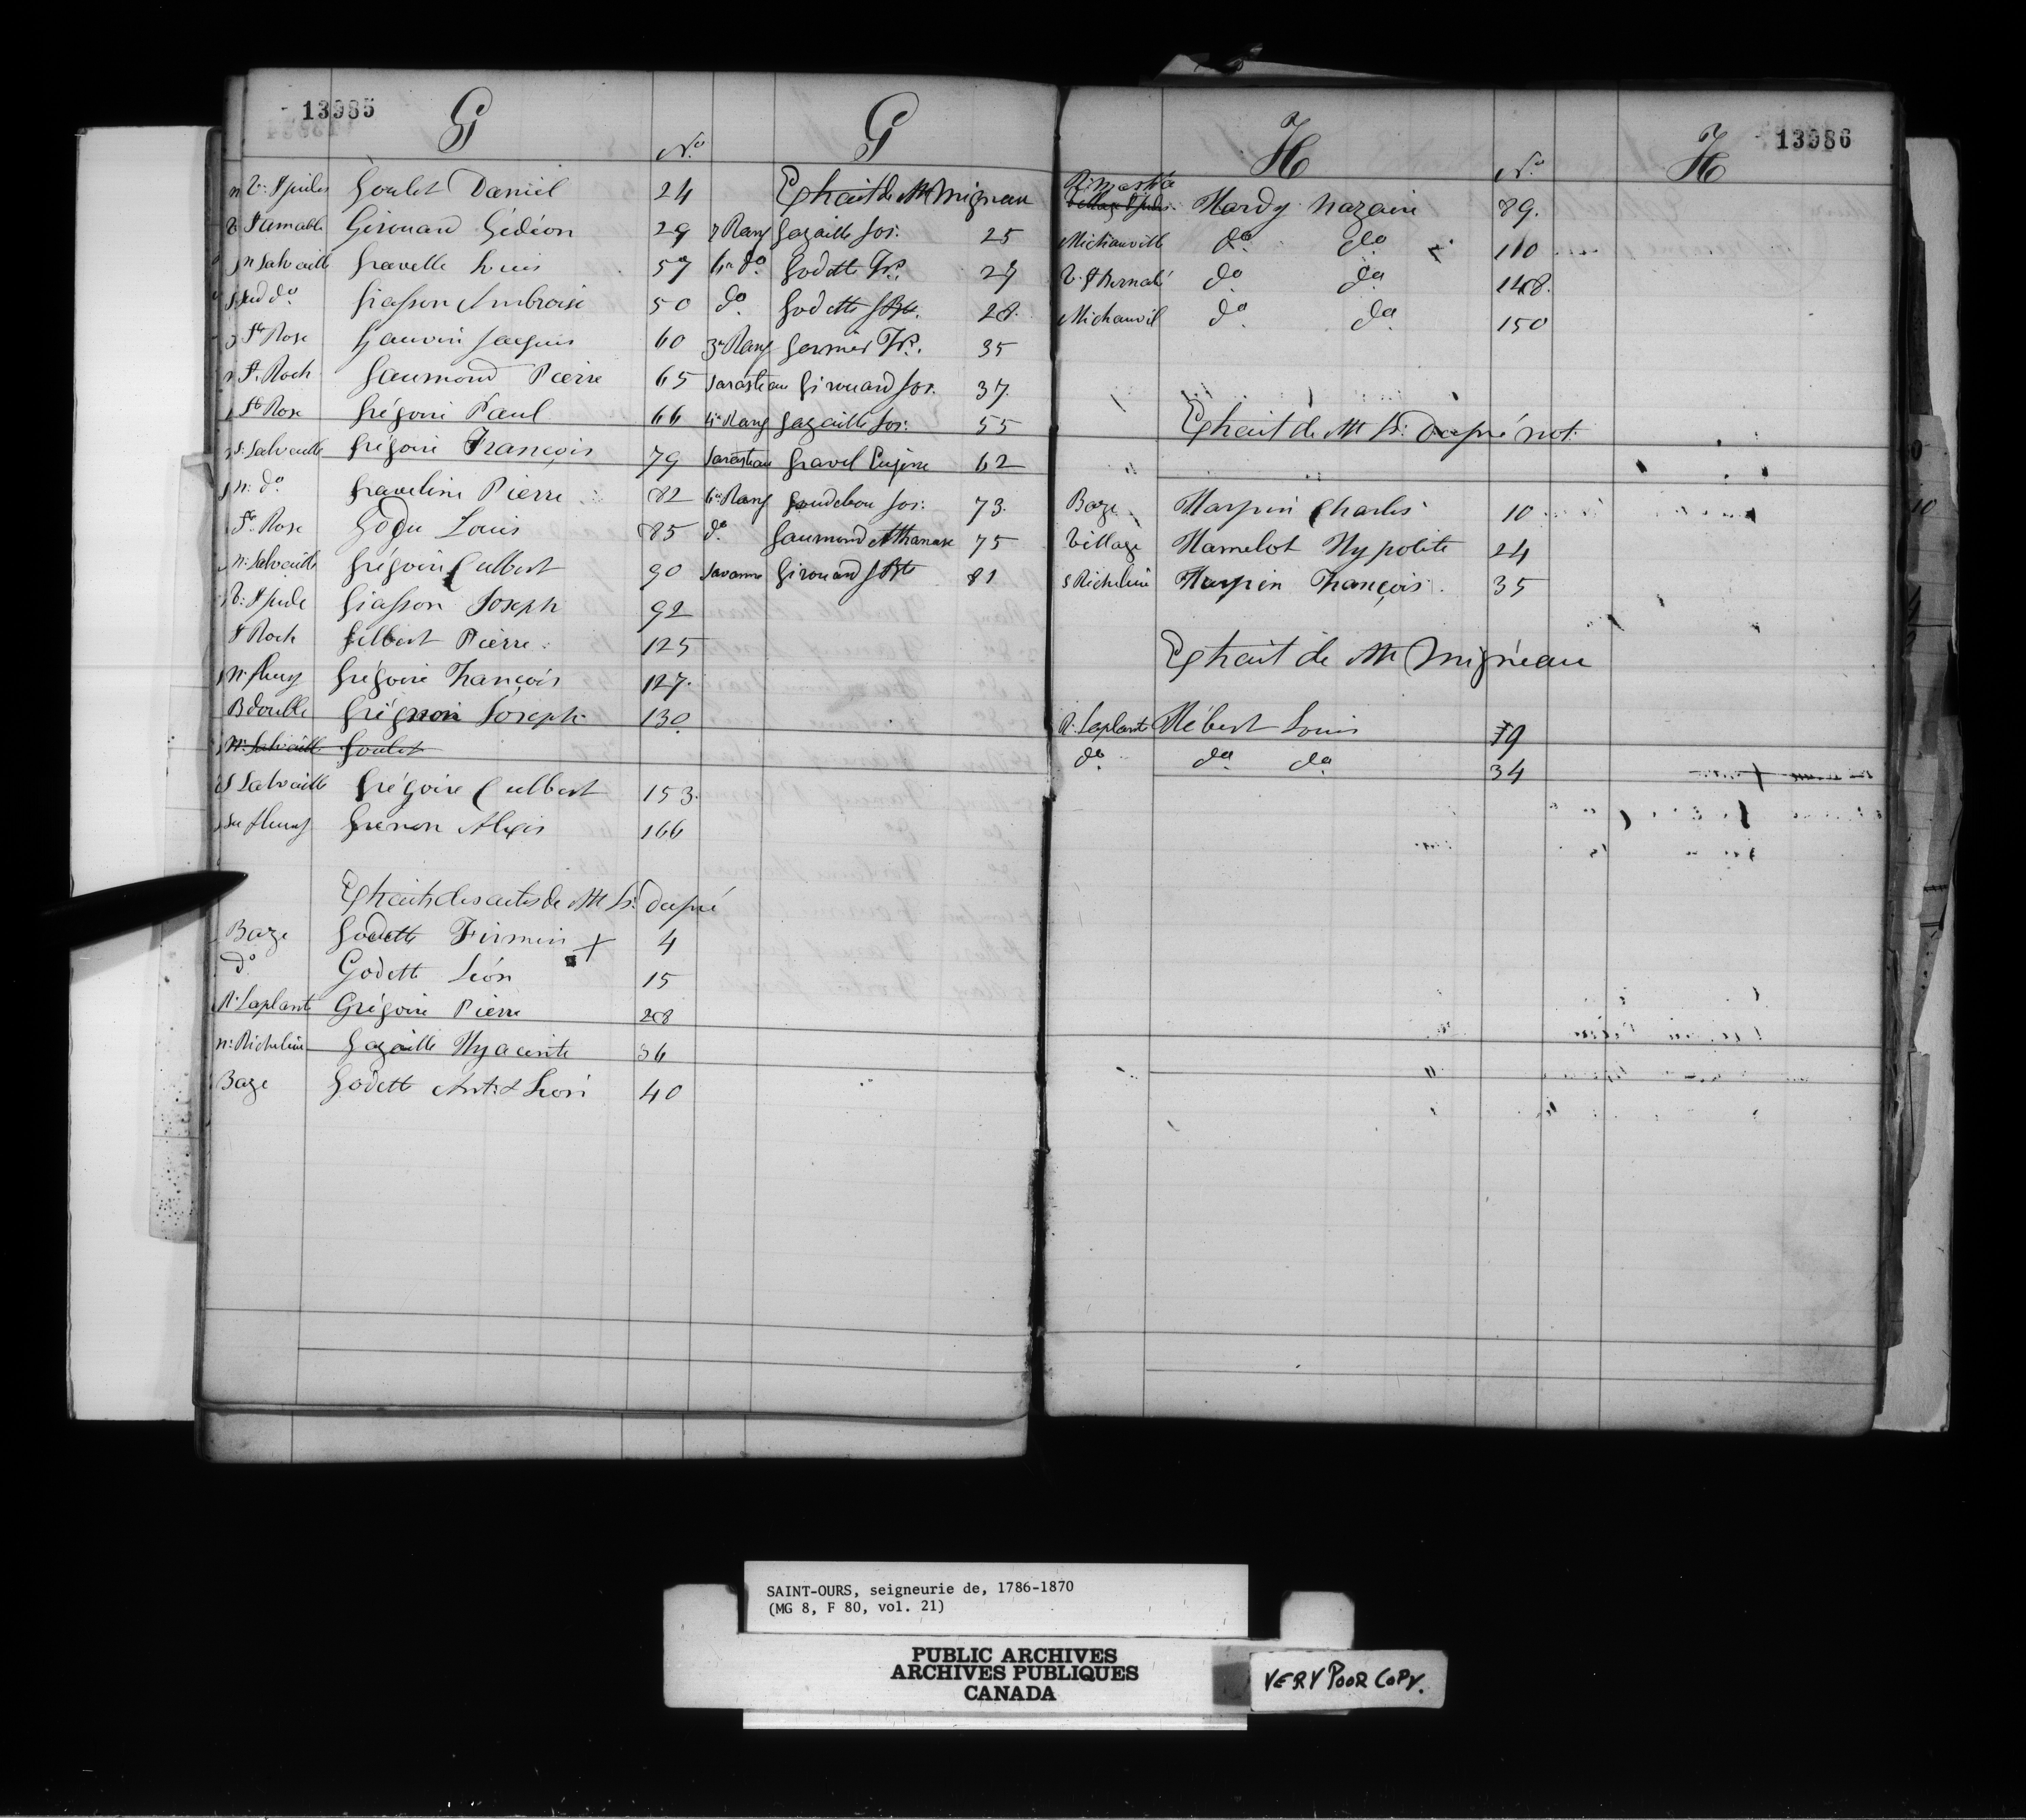 13985
G
No
G
V. St Jude Goulet Daniel 24
V. St Amable Girouard Gédéon 29
n Salvaille Gravelle Louis 57
Sud do Giasson Ambroise 50
Ste Rose Gauvin Jacques 60
St. Roch Gaumond Pierre 65
Ste Rose Grégoire Paul 66
S. Salvaille Grégoire François 79
n. do Graveline Pierre 82
Ste Rose Godu Louis 85
n. Salvaille Grégoire Culbert 90
V. St Jude Giasson Joseph 92
St Roch Gilbert Pierre 125
n. fleury Grégoire François 127.
B double Grégnon Joseph 130
n. Salvaille Goulet
S Salvaille Grégoire Culbert 153.
Su fleury Grenon Alexis 166
Extraits des actes de M Ls. Dupré
Baze Godette Firmin X 4
do Godette Léon 15
R. Laplante Grégoire Pierre 28
n. Richelieu Gazaille Hyacinte 36
Baze Godette Ant. & Léon 40
Extrait de M Migneau
Rang Gazaille Jos. 25
do Godette Frs. 27
do Godette JBte. 28.
3e Rang Germier Frs. 35
Sarasteau Girouard Jos. 37.
4e Rang Gazaille Jos. 55
Sarasteau Gravel Eugène 62
6e Rang Goudebou Jos. 73.
do Gaumond Athanase 75
Savanne Girouard JBte 81
H
No
H
13986
Village St Jude Hardy Nazaire 89.
Michauville do do 110
V. St Bernabé do do 148.
Michauvil do do 150
Extrait de M Ls. Dupré not.
Baze Harpin Charles 10
Village Hamelot Hypolite 24
S Richelieu Harpin François 35
Extrait de M Migneau
R. Laplante Hébert Louis 19
do do do 34
SAINT-OURS, seigneurie de, 1786-1870
(MG 8, F 80, vol. 21)
PUBLIC ARCHIVES
ARCHIVES PUBLIQUES
CANADA
VERY POOR COPY.